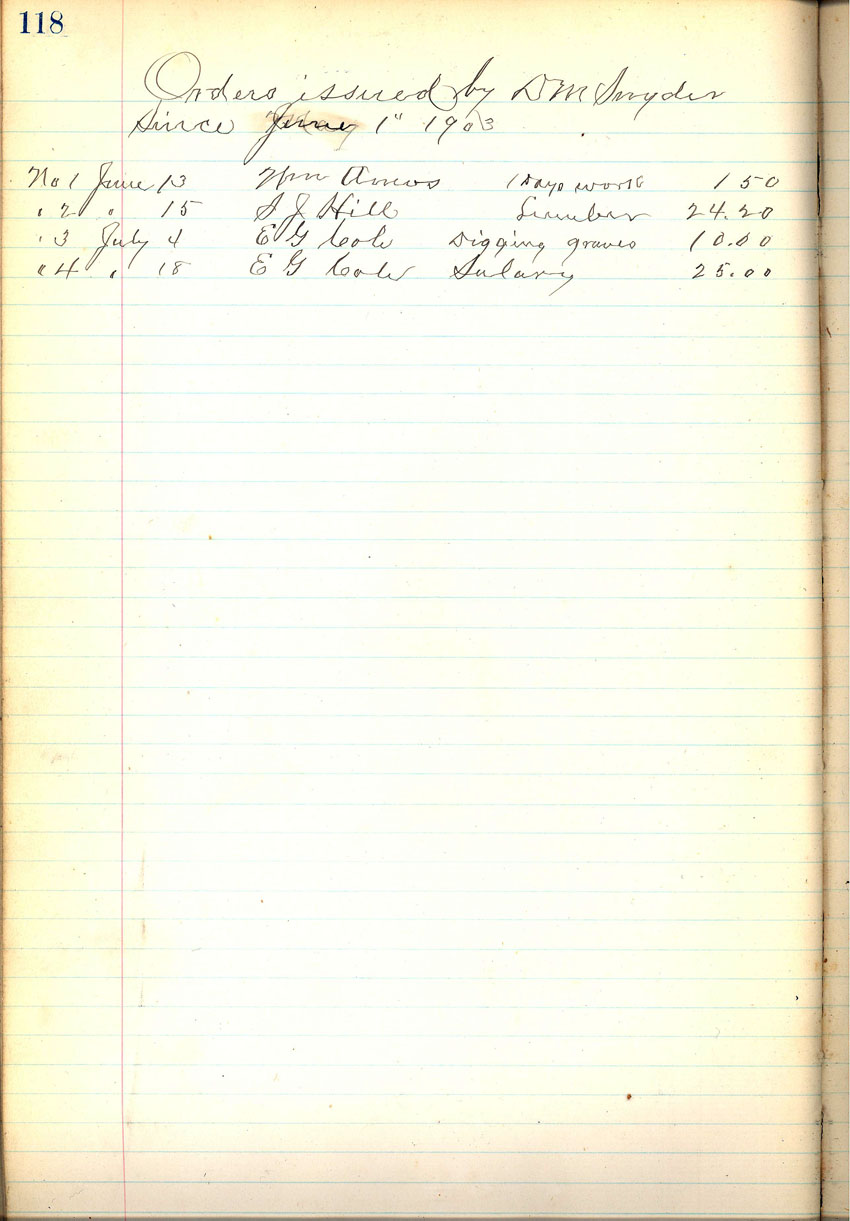 118
Orders issued by D M Snyder
Since June 1" 1903
No 1 June 13 Wm Amos 1 Days work 1 50
" 2 " 15 S J Hill Lumber 24.20
" 3 July 4 E G Cole Digging graves 10.00
" 4 " 18 E G Cole Salary 25.00